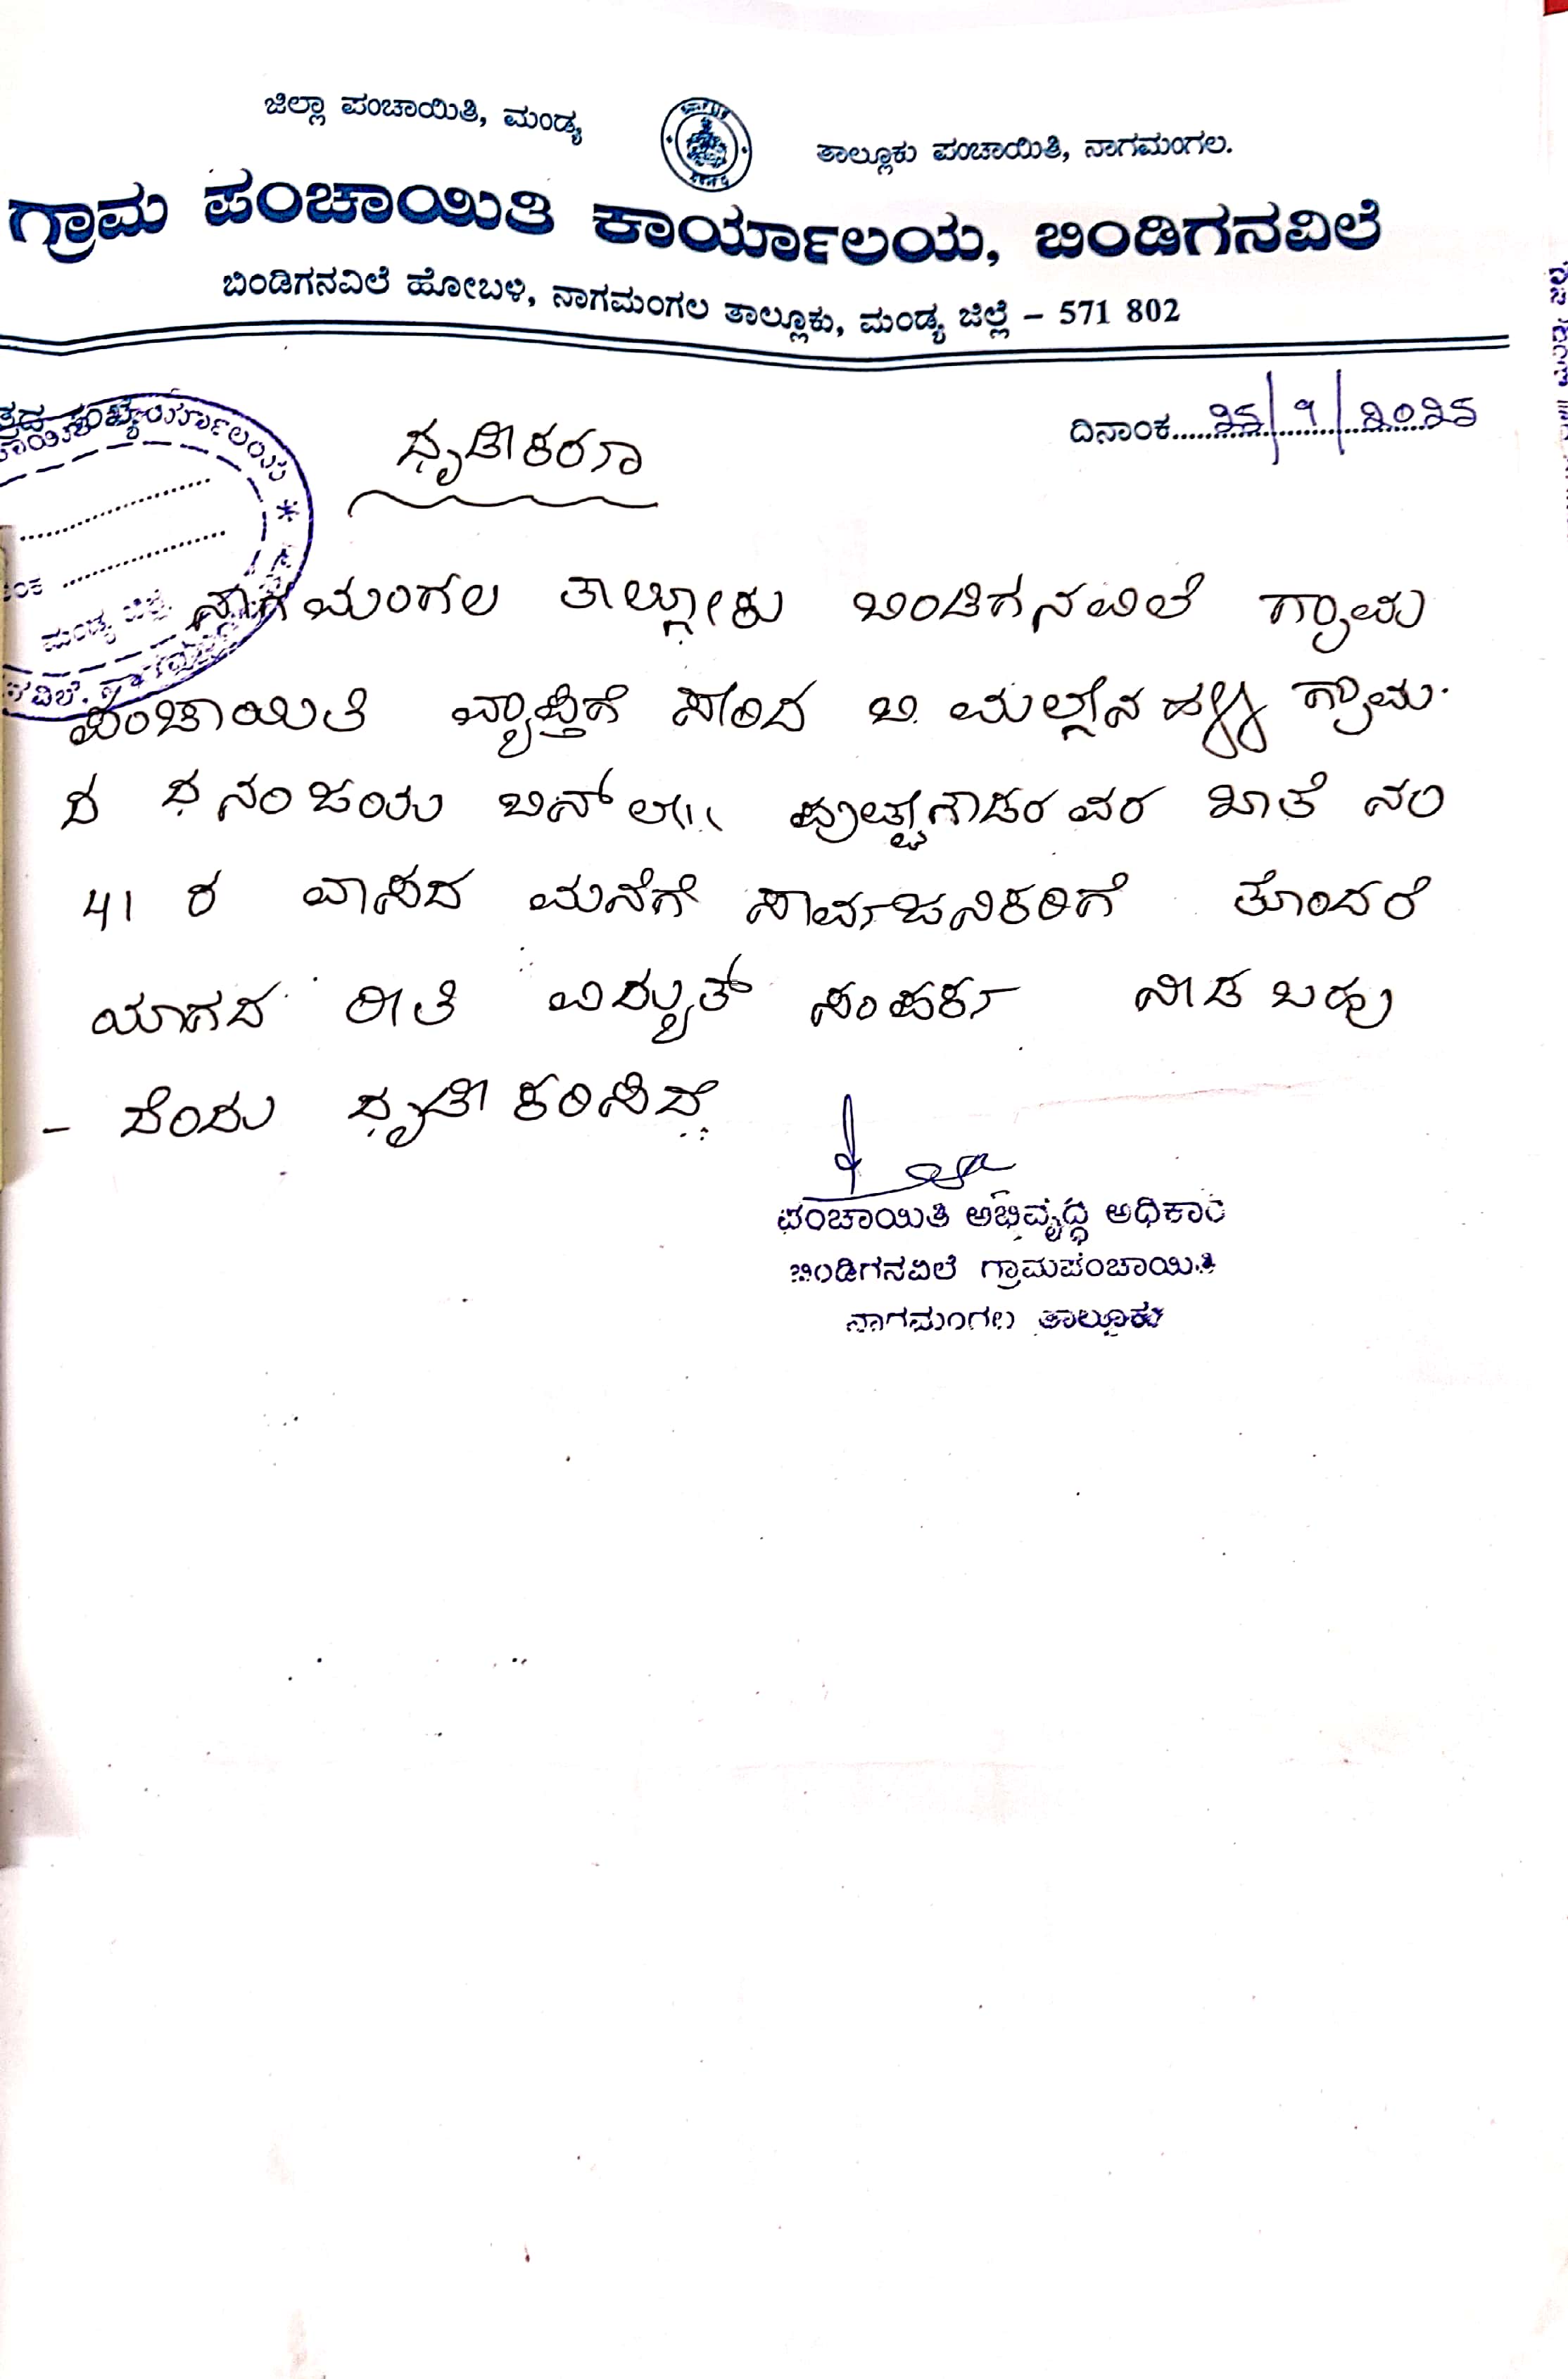 ಜಿಲ್ಲಾ ಪಂಚಾಯಿತಿ, ಮಂಡ್ಯ
ತಾಲ್ಲೂಕು ಪಂಚಾಯಿತಿ, ನಾಗಮಂಗಲ.
ಗ್ರಾಮ ಪಂಚಾಯಿತಿ ಕಾರ್ಯಾಲಯ, ಬಿಂಡಿಗನವಿಲೆ
ಬಿಂಡಿಗನವಿಲೆ ಹೋಬಳಿ, ನಾಗಮಂಗಲ ತಾಲ್ಲೂಕು, ಮಂಡ್ಯ ಜಿಲ್ಲೆ – 571 802
ದಿನಾಂಕ 25/9/2025
ಧೃಡೀಕರಣ
ನಾಗಮಂಗಲ ತಾಲ್ಲೂಕು ಬಿಂಡಿಗನವಿಲೆ ಗ್ರಾಮ
ಪಂಚಾಯಿತಿ ವ್ಯಾಪ್ತಿಗೆ ಸೇರಿದ ಬಿ. ಮಲ್ಲೇನಹಳ್ಳಿ ಗ್ರಾಮ
ದ ಧನಂಜಯ ಬಿನ್ ಲೇ|| ಪುಟ್ಟೇಗೌಡರ ವರ ಖಾತೆ ನಂ
41 ರ ವಾಸದ ಮನೆಗೆ ಸಾರ್ವಜನಿಕರಿಗೆ ತೊಂದರೆ
ಯಾಗದ ರೀತಿ ವಿದ್ಯುತ್ ಸಂಪರ್ಕ ನೀಡ ಬಹು
- ದೆಂದು ಧೃಡೀಕರಿಸಿದೆ.
ಪಂಚಾಯಿತಿ ಅಭಿವೃದ್ಧಿ ಅಧಿಕಾರಿ
ಬಿಂಡಿಗನವಿಲೆ ಗ್ರಾಮಪಂಚಾಯಿತಿ
ನಾಗಮಂಗಲ ತಾಲ್ಲೂಕು